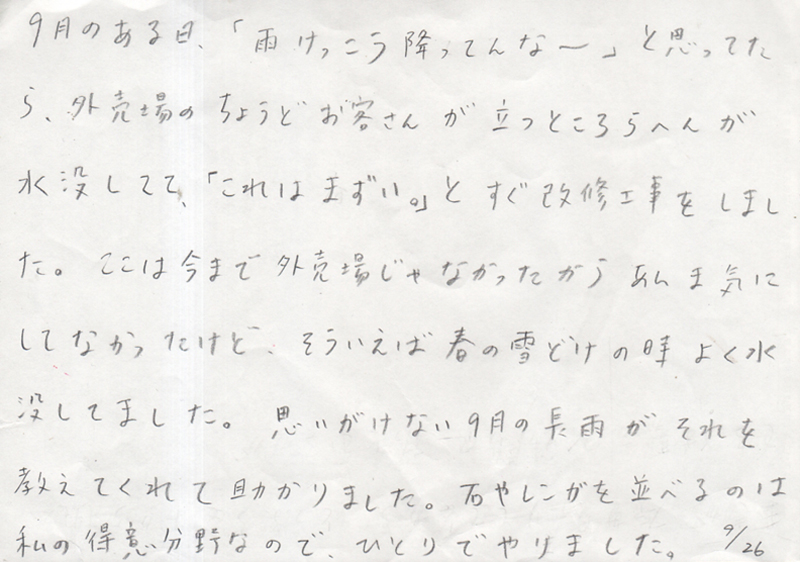 9月のある日、「雨けっこう降ってんな〜」と思ってた
ら、外売場のちょうどお客さんが立つところらへんが
水没してて、「これはまずい。」とすぐ改修工事をしまし
た。ここは今まで外売場じゃなかったからあんま気に
してなかったけど、そういえば春の雪どけの時よく水
没してました。思いがけない9月の長雨がそれを
教えてくれて助かりました。石やレンガを並べるのは
私の得意分野なので、ひとりでやりました。 9/26